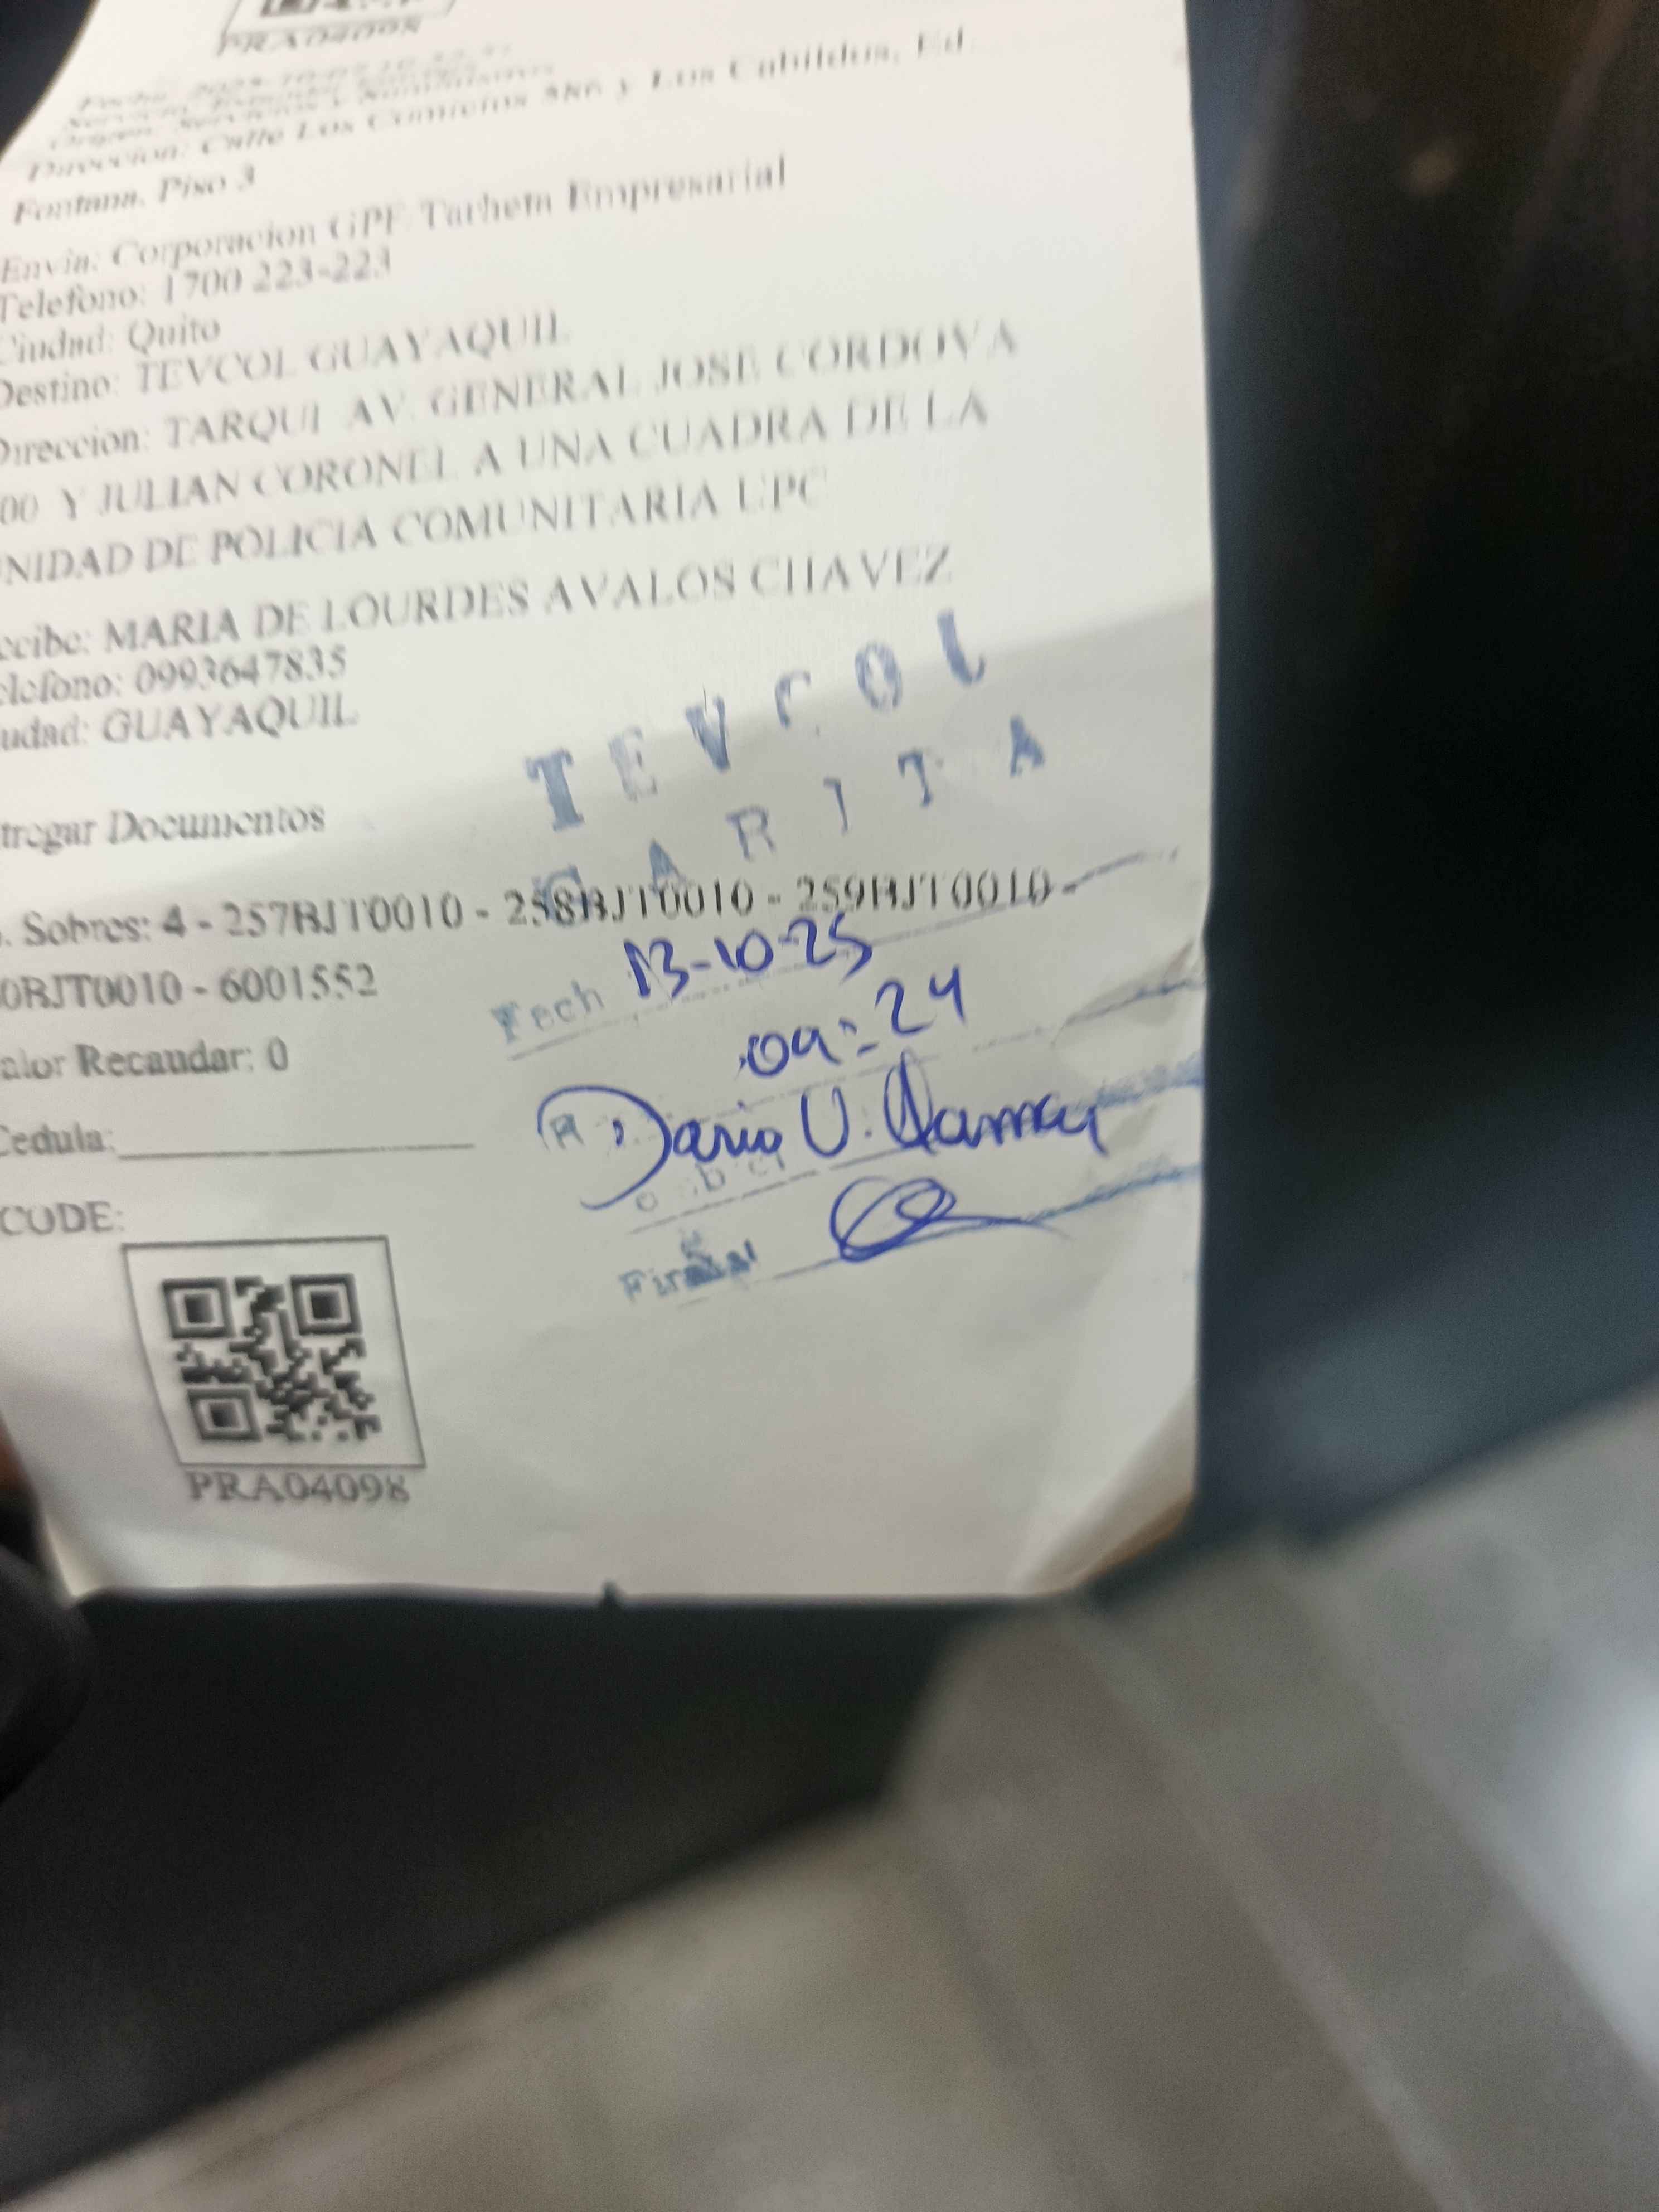 PRA04098
Direccion: Calle Los Comicios 386 y Los Cabildos, Ed.
Fontana, Piso 3
Envia: Corporacion GPF Tarheta Empresarial
Telefono: 1700 223-223
Ciudad: Quito
Destino: TEVCOL GUAYAQUIL
Direccion: TARQUI AV. GENERAL JOSE CORDOVA
00 Y JULIAN CORONEL A UNA CUADRA DE LA
NIDAD DE POLICIA COMUNITARIA UPC
ecibe: MARIA DE LOURDES AVALOS CHAVEZ
elefono: 0993647835
udad: GUAYAQUIL
TEVCOL
GARITA
tregar Documentos
. Sobres: 4 - 257BJT0010 - 258BJT0010 - 259BJT0010 -
0BJT0010 - 6001552
Fech 13-10-25
09:24
alor Recaudar: 0
Cedula:
Dario V.
CODE:
Firma
PRA04098